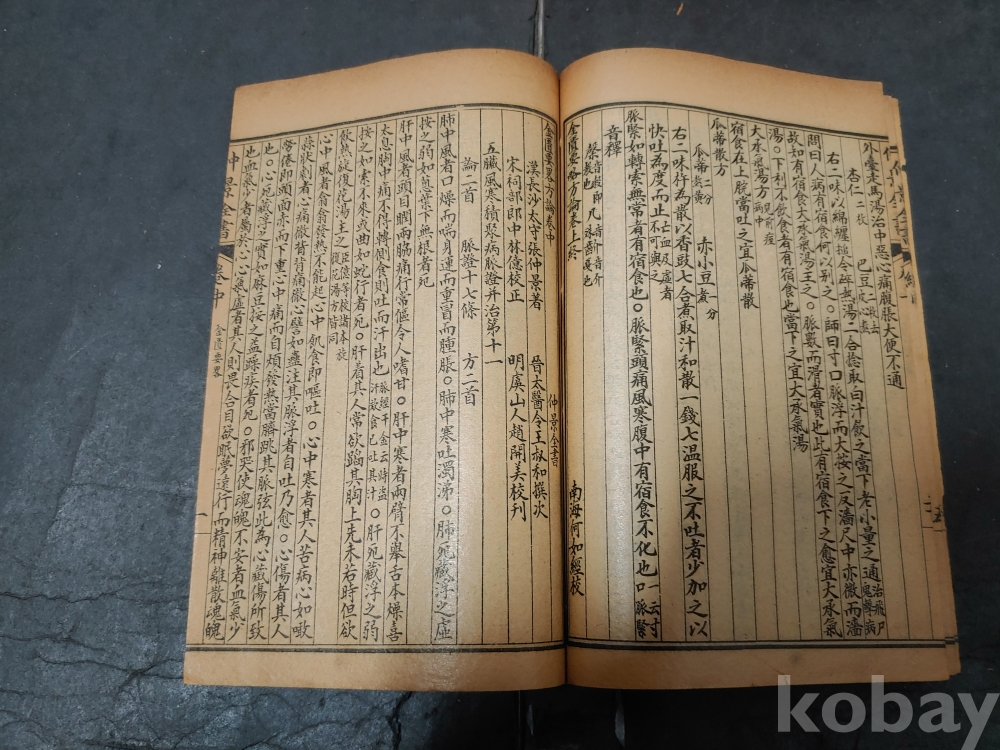 外臺走馬湯治中惡心痛腹脹大便不通
杏仁二枚 巴豆二枚去皮心熬
右二味以綿纏搥令碎熱湯二合捻取白汁飲之當下老小量之通治飛尸鬼擊病
問曰人病有宿食何以別之。師曰寸口脈浮而大按之反濇尺中亦微而濇
故知有宿食大承氣湯主之。脈數而滑者實也此有宿食下之愈宜大承氣
湯。下利不飲食者有宿食也當下之宜大承氣湯
大承氣湯方見前痙病中
宿食在上脘當吐之宜瓜蒂散
瓜蒂散方
瓜蒂一分熬黃 赤小豆一分煮
右二味杵為散以香豉七合煮取汁和散一錢匕溫服之不吐者少加之以
快吐為度而止亡血及虛者不可與之
脈緊如轉索無常者有宿食也。脈緊頭痛風寒腹中有宿食不化也一云寸口脈緊
音釋
金匱要略方論卷上終 南海何如經校
金匱要畧方論卷中 仲景全書
漢長沙太守張仲景著 晉太醫令王叔和撰次
宋祠部郎中林億校正 明虞山人趙開美校刊
五臟風寒積聚病脈證并治第十一
論二首 脈證十七條 方二首
肺中風者口燥而喘身運而重冒而腫脹。肺中寒吐濁涕。肺死藏浮之虛
按之弱如葱葉下無根者死
肝中風者頭目瞤兩脇痛行常傴令人嗜甘。肝中寒者兩臂不舉舌本燥喜
太息胸中痛不得轉側食則吐而汗出也脈經千金云時盜汗欬食已吐其汁。肝死藏浮之弱
按之如索不來或曲如蛇行者死。肝着其人常欲蹈其胸上先未苦時但欲
飲熱旋復花湯主之臣億等校諸本旋復花湯方皆同
心中風者翕翕發熱不能起心中飢食即嘔吐。心中寒者其人苦病心如噉
蒜狀劇者心痛徹背背痛徹心譬如蠱注其脈浮者自吐乃愈。心傷者其人
勞倦即頭面赤而下重心中痛而自煩發熱當臍跳其脈弦此為心藏傷所致
也。心死藏浮之實如麻豆按之益躁疾者死。邪哭使魂魄不安者血氣少
也血氣少者屬於心心氣虛者其人則畏合目欲眠夢遠行而精神離散魂魄
仲景全書 卷中 金匱要畧 一